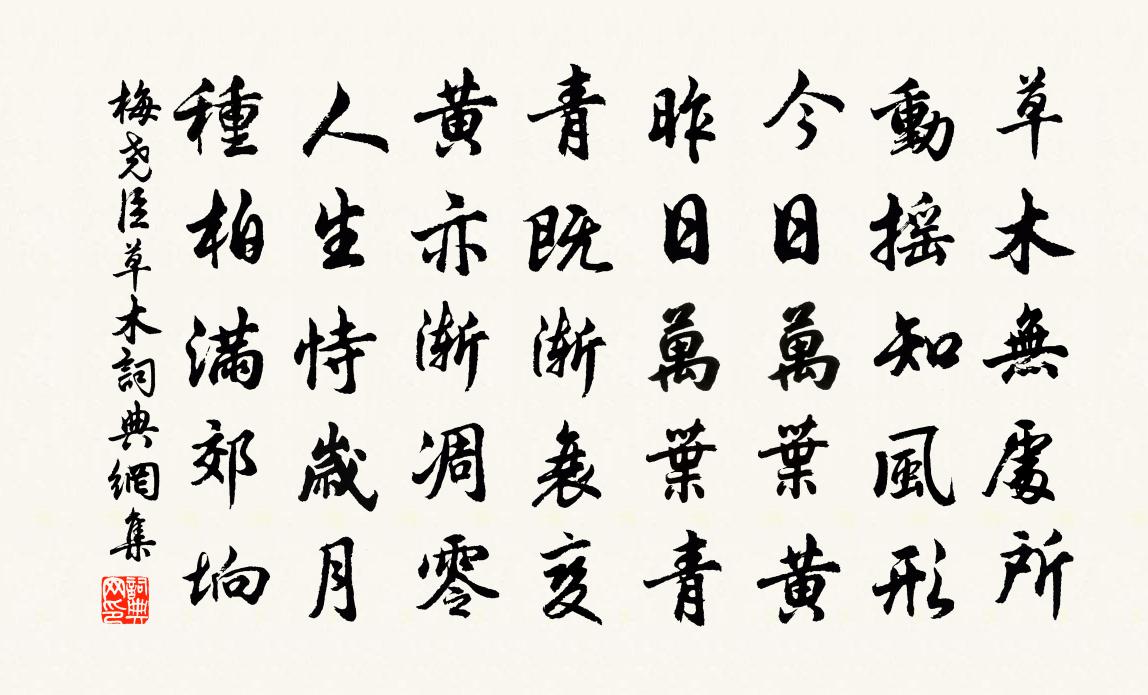 草木無處所
動搖知風形
今日萬葉黃
昨日萬葉青
青既漸衰變
黃亦漸凋零
人生恃歲月
種柏滿郊坰
梅堯臣草木詞典網集
詞典网印